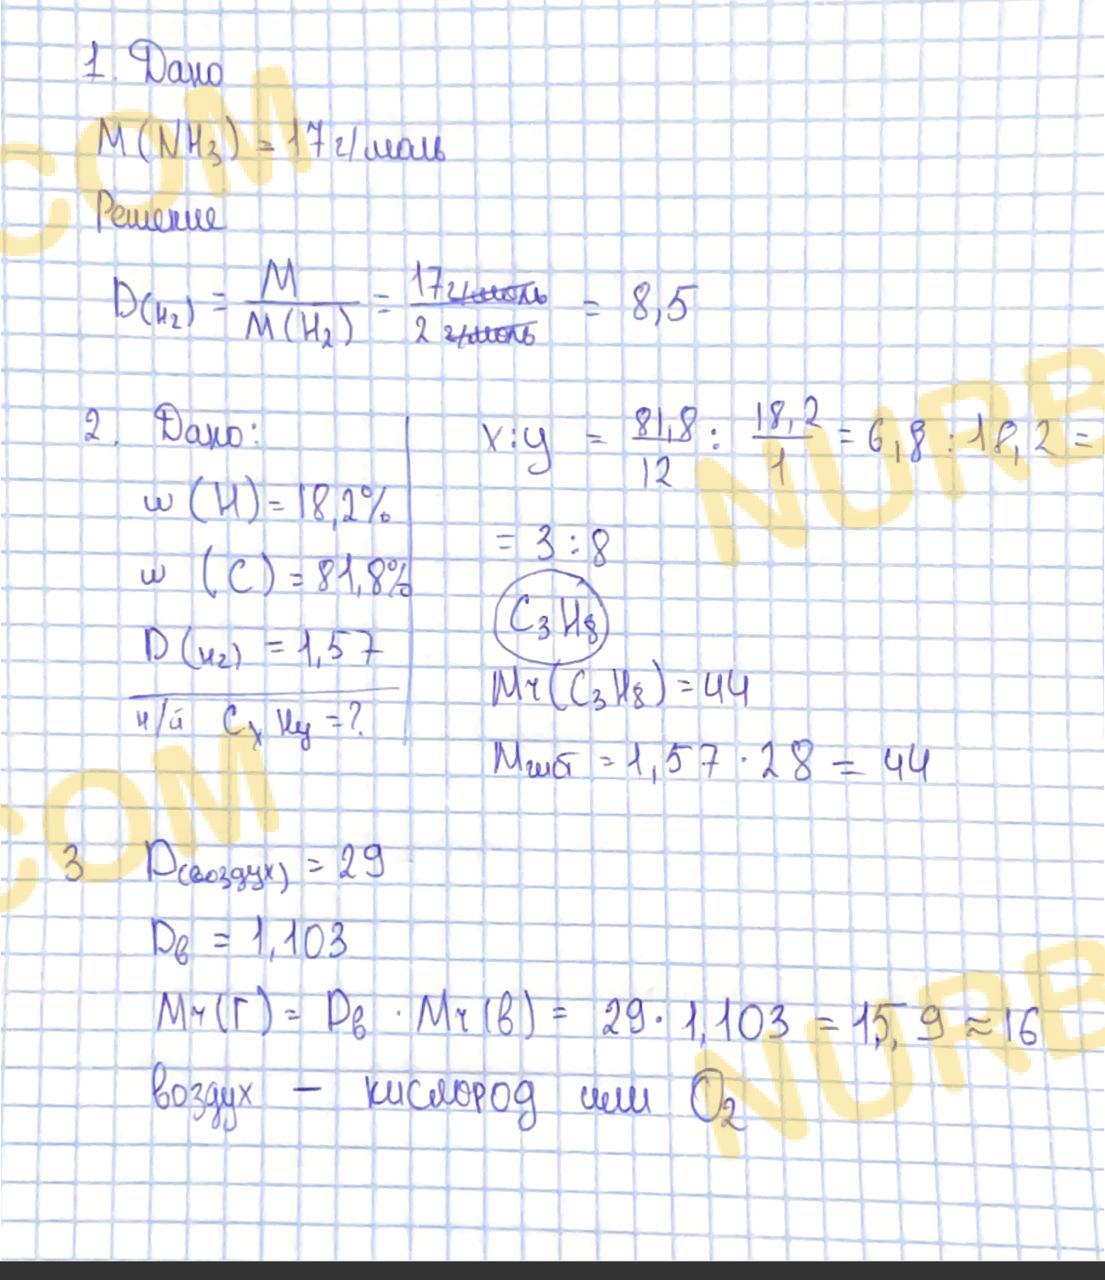 1. Дано
M(NH3) = 17 г/моль
Решение
D(H2) = M / M(H2) = 17 г/моль / 2 г/моль = 8,5
2. Дано:
w (H) = 18,2%
w (C) = 81,8%
D(H2) = 1,57
н/й CxHy = ?
x:y = 81,8/12 : 18,2/1 = 6,8 : 18,2 =
= 3:8
C3H8
Mr(C3H8) = 44
= 1,57 · 28 = 44
3 D(воздух) = 29
Dв = 1,103
Mr(Г) = Dв · Mr(в) = 29 · 1,103 = 15,9 ≈ 16
воздух — кислород или O2
COM
NURB
COM
NURB